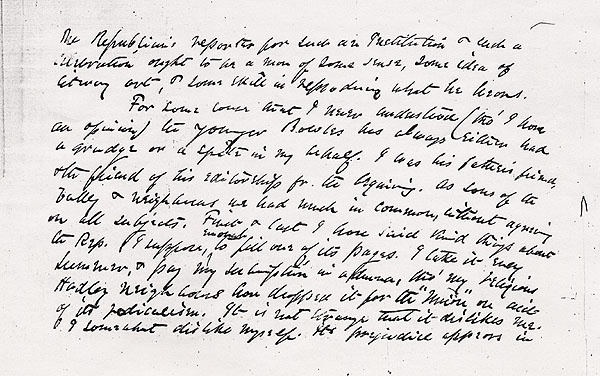 The Republican's reporter for such an Institution & such a
celebration ought to be a man of some sense, some idea of
literary art, & some skill in reproducing what he hears.
For some cause that I never understood (tho' I have
an opinion) the younger Bowles has always either had
a grudge or a spite in my behalf. I was his father's friend,
& the friend of his editorship fr. the beginning. As sons of the
Valley & neighbours we had much in common, without agreeing
on all subjects. First & last I have said kind things about
the Rep. enough I suppose, to fill one of its pages. I take it every
summer, & pay my subscription in advance, tho' my religious
Hadley neighbours have dropped it for the "Union" on acct
of its radicalism. It is not strange that it dislikes me.
I somewhat dislike myself. Its prejudice appears in